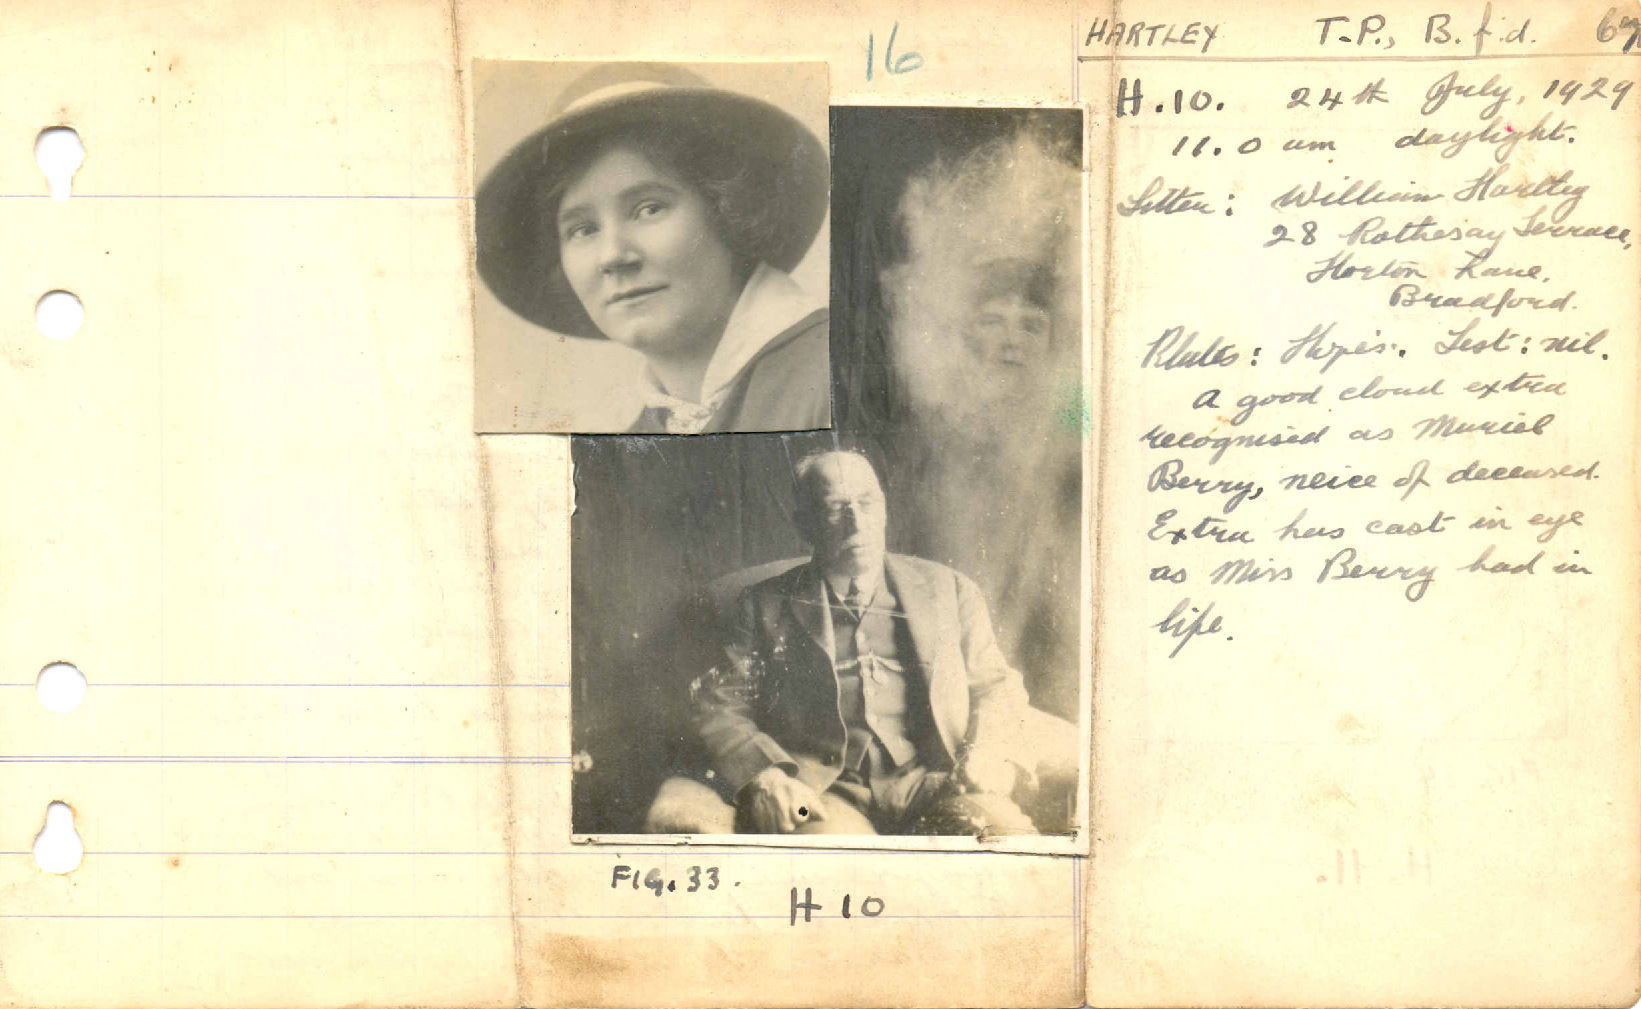 16
HARTLEY T.P., B.f.d. 67
H.10. 24th July, 1929
11.0 am daylight.
Sitter: William Hartley
28 Rothesay Terrace,
Horton Lane,
Bradford.
Plates: Test: nil.
A good cloud extra
recognised as Muriel
Berry, neice of deceased.
Extra has cast in eye
as Miss Berry had in
life.
FIG. 33.
H 10
H. 11.